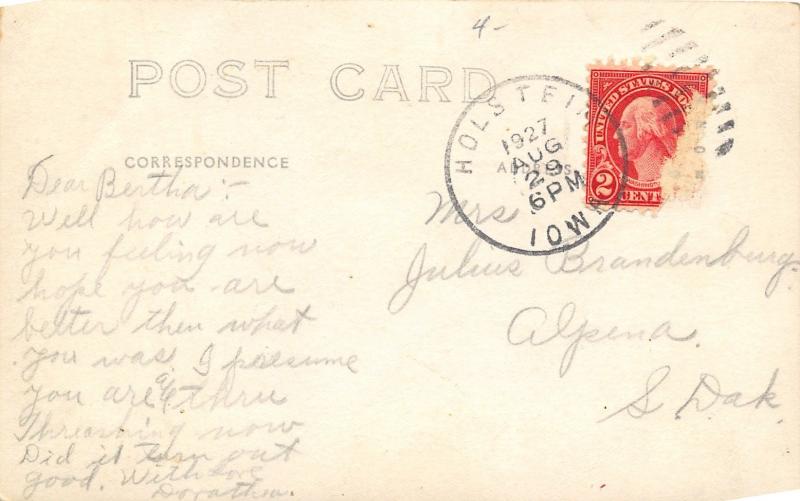 4-
POST CARD
HOLSTEIN
1927
AUG
29
6PM
IOWA
UNITED STATES POS
WASHINGTON
2 CENTS 2
CORRESPONDENCE
ADDRESS
Dear Bertha:-
Well how are
you feeling now
hope you are
better then what
you was. I presume
you are all thru
Threasning now
Did it turn out
good. With love
Dorathea.
Mrs
Julius Brandenburg.
Alpena.
S. Dak.